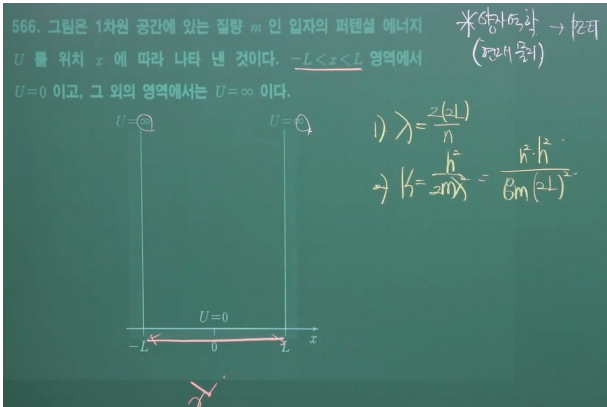 566. 그림은 1차원 공간에 있는 질량 m 인 입자의 퍼텐셜 에너지
U 를 위치 x 에 따라 나타 낸 것이다. -L<x<L 영역에서
U=0 이고, 그 외의 영역에서는 U=∞ 이다.
*양자역학 →
(현대물리)
U=∞
U=∞
1) λ=2(2L)/n
2) K=h²/2mλ²=n²·h²/8m(2L)²
U=0
-L
0
L
x